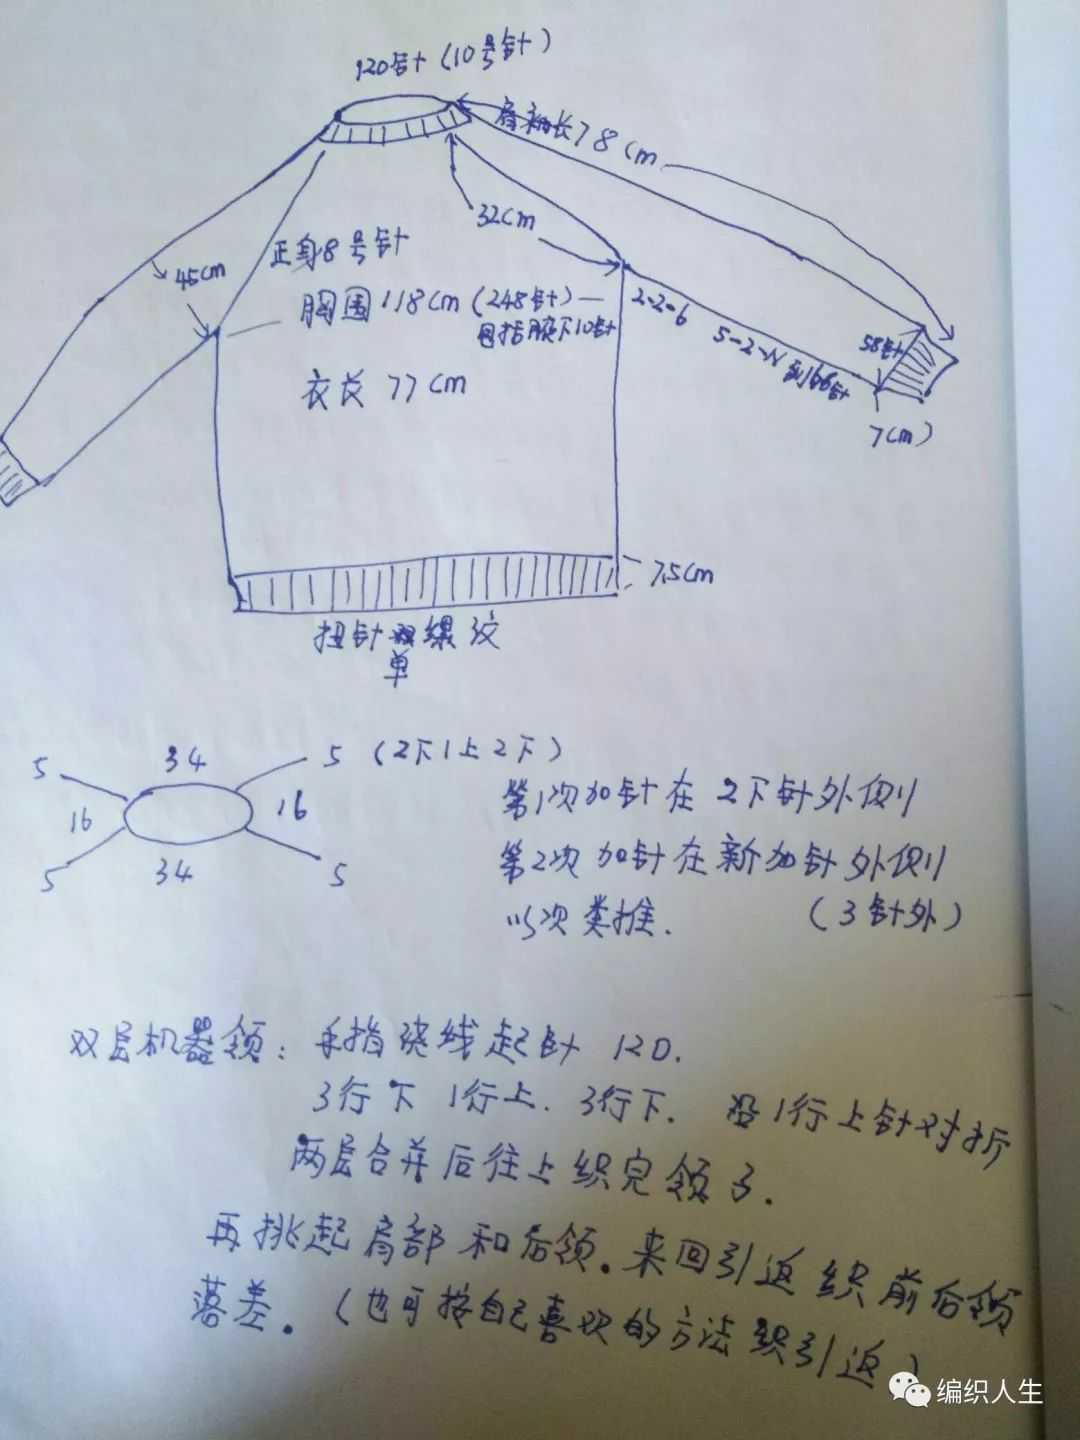 120针（10号针）
肩袖长78cm
32cm
45cm
正身8号针
胸围118cm（248针）
包括腋下10针
衣长77cm
2-2-6
5-2-N 到166针
58针
7cm）
7.5cm
扭针螺纹
单
34
5
5（2下1上2下）
16
16
5
34
5
第1次加针在2下针外侧
第2次加针在新加针外侧
以次类推.（3针外）
双层机器领：手指绕线起针120.
3行下1行上.3行下.沿1行上针对折
两层合并后往上织完领子.
再挑起肩部和后领.来回引返织前后领
落差.（也可按自己喜欢的方法织引返）
编织人生